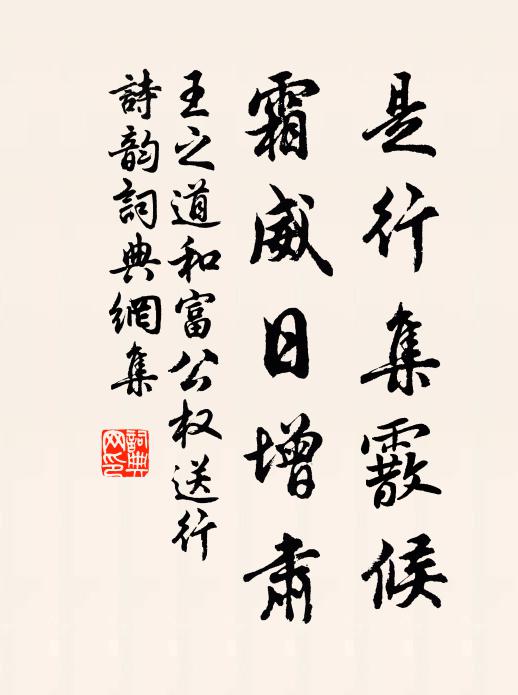 是行集霰候
霜威日增肃
王之道和富公权送行
詩韵詞典網集
詞典网印